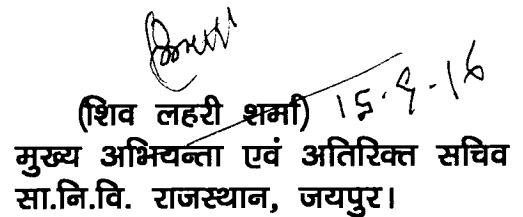 (शिव लहरी शर्मा) 15.9.16
मुख्य अभियन्ता एवं अतिरिक्त सचिव
सा.नि.वि. राजस्थान, जयपुर।